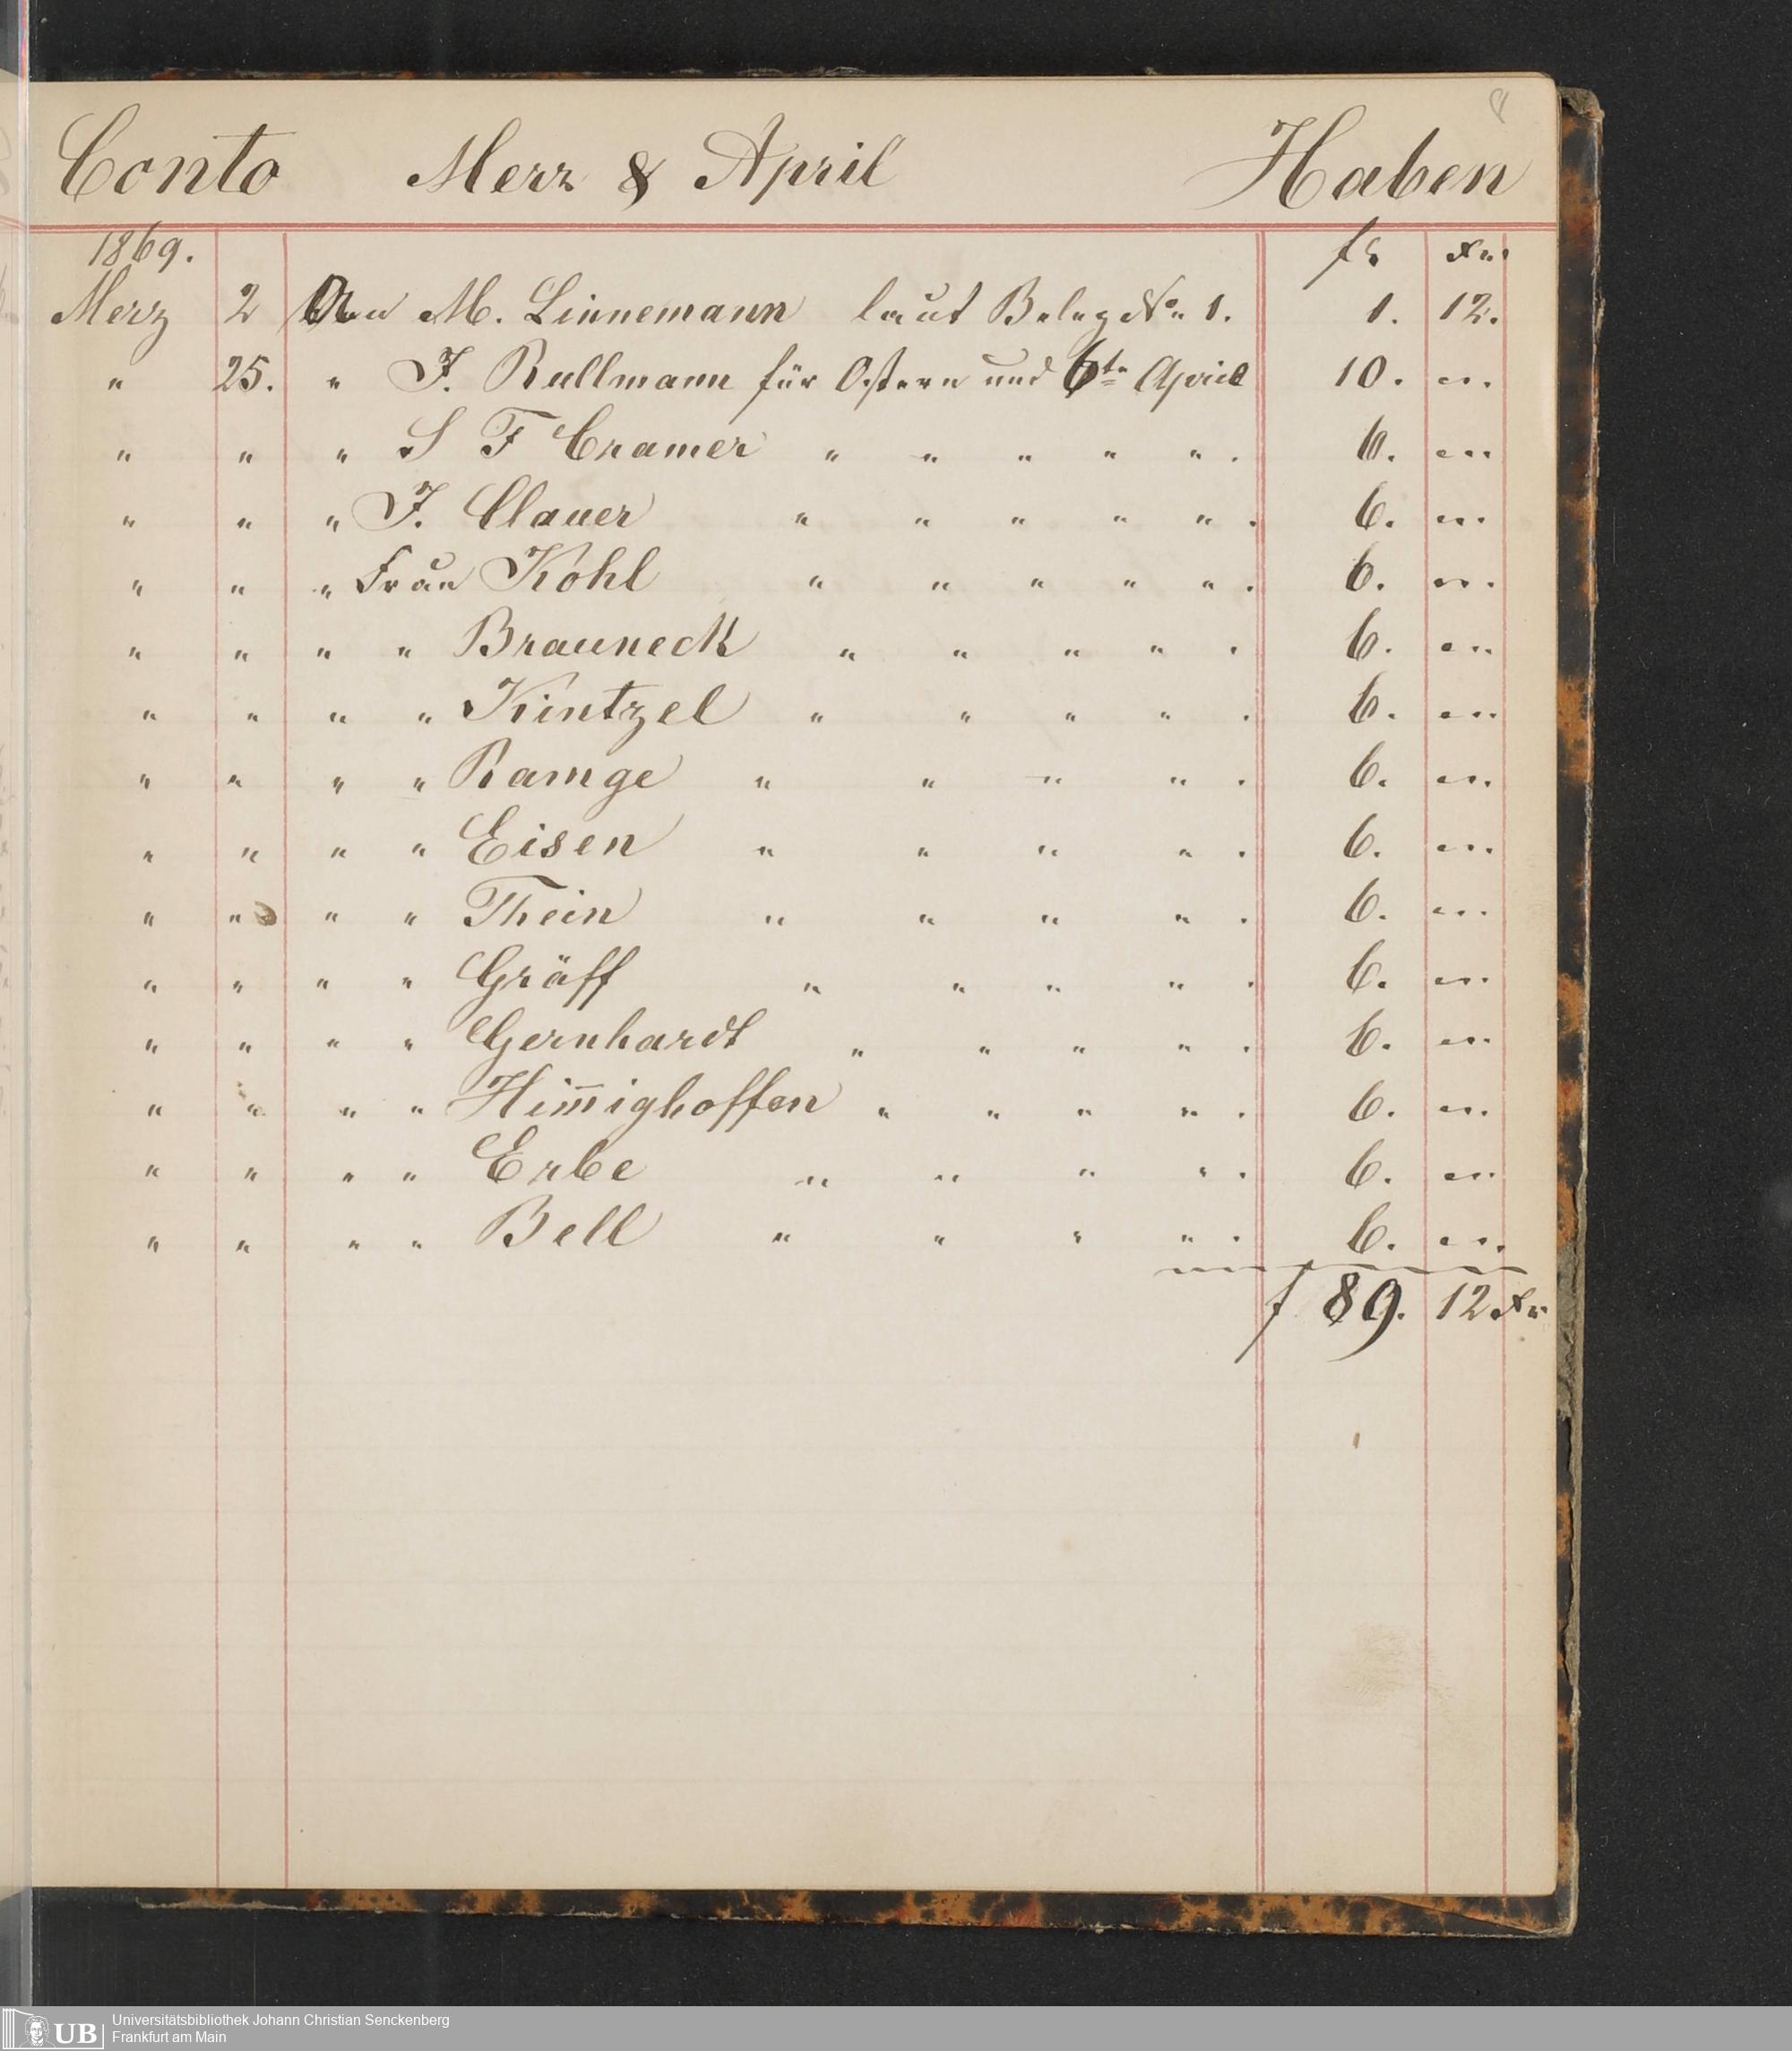 Conto Merz & April Haben
1869. fr xr
Merz 2 An M. Linnemann laut Beleg No 1. 1. 12.
" 25. " J. Rullmann für Ostern und 6te April 10. "
" " " S F Cramer " " " " " . 6. "
" " " J. Clauer " " " " " . 6. "
" " " Frau Kohl " " " " " . 6. "
" " " " Brauneck " " " " . 6. "
" " " " Kintzel " " " " . 6. "
" " " " Ramge " " " " . 6. "
" " " " Eisen " " " " . 6. "
" " " " Thein " " " " . 6. "
" " " " Gräff " " " " . 6. "
" " " " Gernhardt " " " " . 6. "
" " " " Him̅ighoffen " " " " . 6. "
" " " " Erbe " " " " . 6. "
" " " " Bell " " " " . 6. "
f 89. 12 xr
UB Universitätsbibliothek Johann Christian Senckenberg
Frankfurt am Main